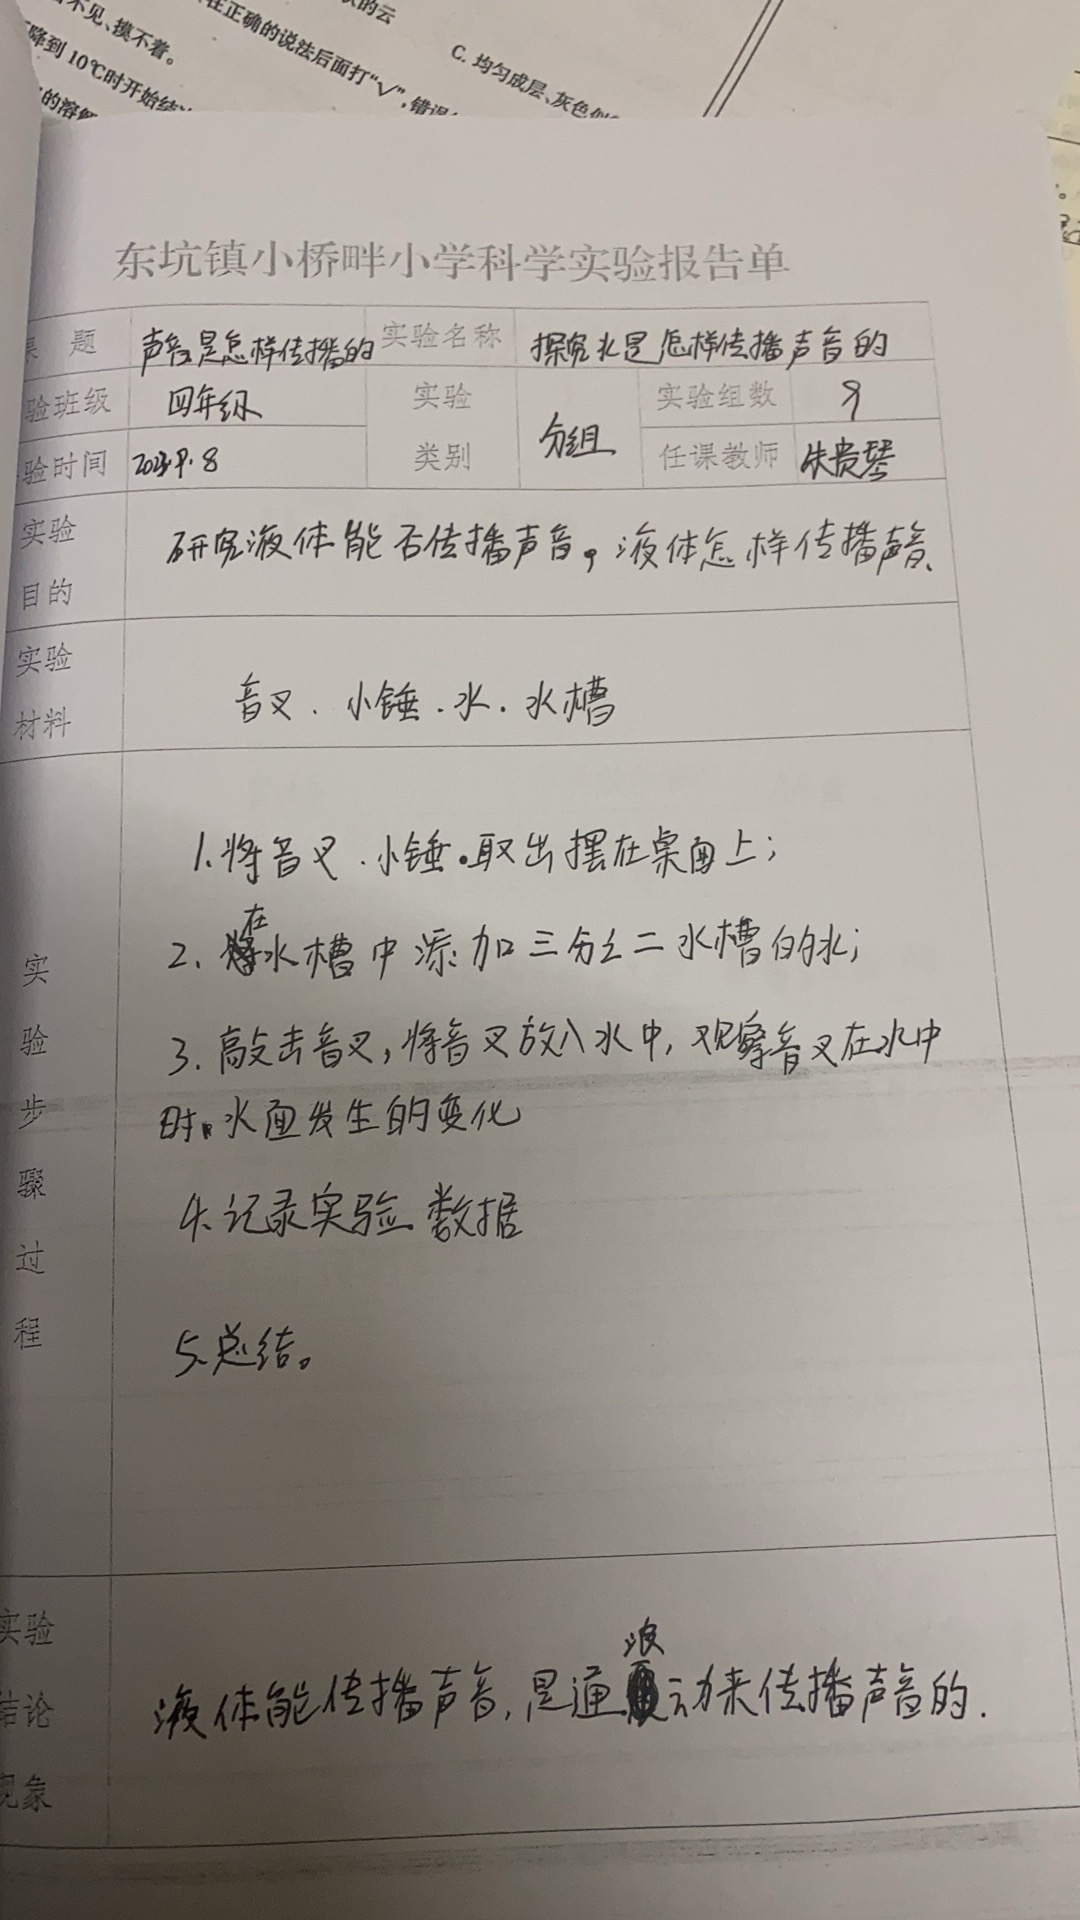 状的云
不见、摸不着。
在正确的说法后面打“√”,错误
C. 均匀成层、灰色似
降到10℃时开始结
的溶解
东坑镇小桥畔小学科学实验报告单
题 声音是怎样传播的 实验名称 探究水是怎样传播声音的
验班级 四年级 实验 类别 分组 实验组数 9
验时间 任课教师 朱贵琴
实验
目的
研究液体能否传播声音,液体怎样传播声音、
实验
材料
音叉.小锤.水.水槽
实
验
步
骤
过
程
1.将音叉.小锤.取出摆在桌面上;
2.在水槽中添加三分之二水槽的水;
3.敲击音叉,将音叉放入水中,观察音叉在水中
时水面发生的变化
4.记录实验数据
5.总结。
实验
结论
现象
液体能传播声音,是通波动来传播声音的.